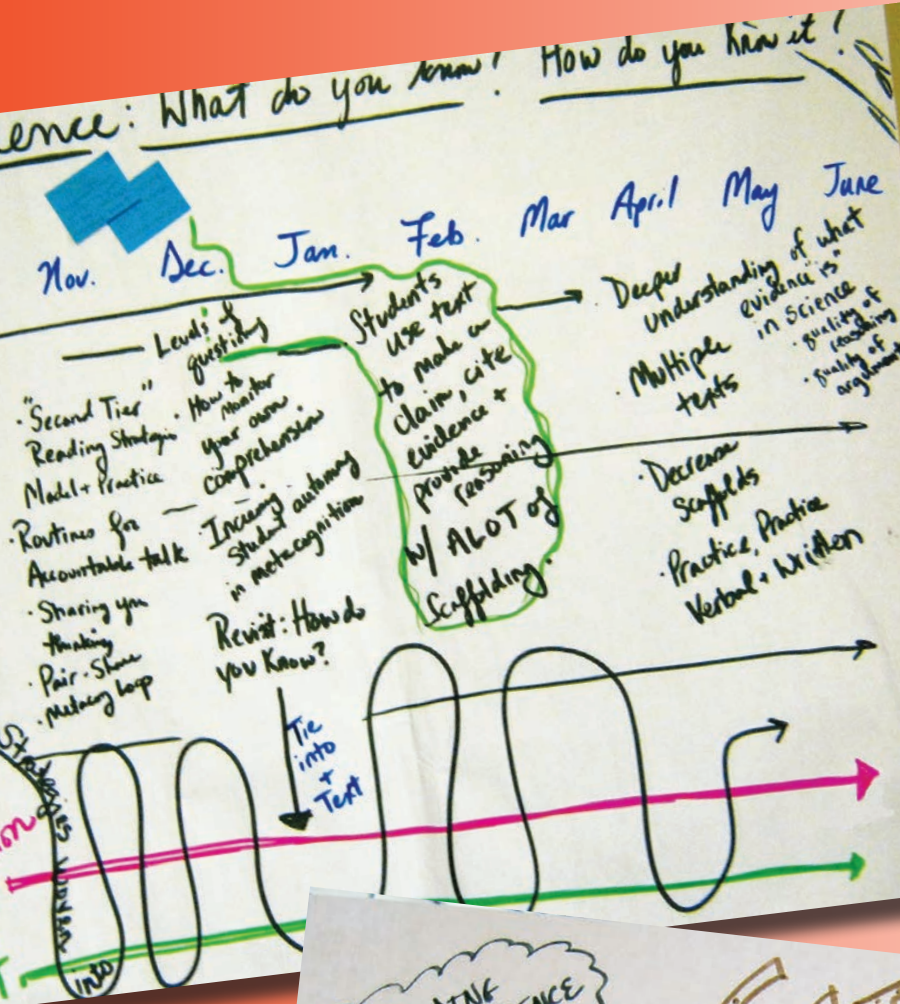 ence: What do you know? How do you know it?
Nov. Dec. Jan. Feb. Mar April May June
"Second Tier"
Reading Strategies
Model + Practice
Routines for
Accountable talk
Sharing your
thinking
Pair-Share
Metacog loop
Levels of
questioning
How to
monitor
your own
comprehension
Increasing
Student autonomy
in metacognition
Revisit: How do
you know?
Tie
into
+
Text
Students
use text
to make a
claim, cite
evidence +
provide
reasoning
w/ ALOT of
Scaffolding.
Deeper
understanding of what
evidence "is"
in science
quality of
reasoning
quality of
argument
Multiple
texts
Decrease
Scaffolds
Practice, Practice
Verbal + Written
Strategies woven
into